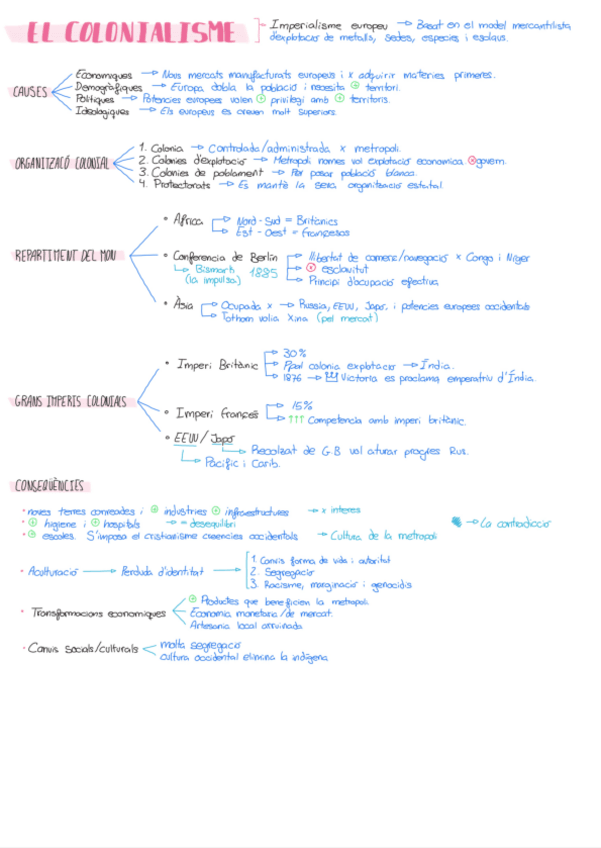 EL COLONIALISME
Imperialisme europeu → Basat en el model mercantilista
d'explotació de metalls, sedes, especies i esclaus.
CAUSES
Econòmiques → Nous mercats manufacturats europeus i x adquirir matèries primeres.
Demogràfiques → Europa dobla la població i necesita ⊕ territori.
Polítiques → Potencies europees volen ⊕ privilegi amb ⊕ territoris.
Ideologiques → Els europeus es creuen molt superiors.
ORGANITZACÓ COLONIAL
1. Colonia → Controlada/administrada x metropoli.
2. Colonies d'explotació → Metropoli nomes vol explotació economica ⊗ govern.
3. Colonies de poblament → Per posar població blanca.
4. Protectorats → Es mantè la seva organització estatal.
REPARTIMENT DEL MON
• Africa
Nord-Sud = Britànics
Est-Oest = Francesos
• Conferencia de Berlín
Bismarch 1885
(la impulsa)
llibertat de comerc/navegació x Congo i Niger
⊗ esclavitut
Principi d'ocupació efectiva
• Àsia
Ocupada x → Russia, EEUU, Japó i potencies europees occidentals
Tothom volia Xina (pel mercat)
GRANS IMPERIS COLONIALS
• Imperi Britànic
30%
Ppal colonia explotacio → Índia.
1876 → Victoria es proclama emperatriu d'Índia.
• Imperi françes
15%
↑↑↑ Competencia amb imperi britànic
• EEUU/Japó
Recolzat de G.B vol aturar progres Rus.
Pacific i Carib.
CONSEQÜÈNCIES
• noves terres conreades i ⊕ industries ⊕ infraestructures → x interes
• ⊕ higiene i ⊕ hospitals → = desequilibri
→ La contradicció
• ⊕ escoles. S'imposa el cristianisme creencies occidentals → Cultura de la metropoli
• Aculturació → Perduda d'identitat →
1. Canvis forma de vida i autoritat
2. Segregació
3. Racisme, marginació i genocidis
• Transformacions economiques
⊕ Productes que beneficien la metropoli.
Economia monetaria/de mercat.
Artesania local arruinada
• Canvis socials/culturals
molta segregació
cultura occidental elimina la indígena